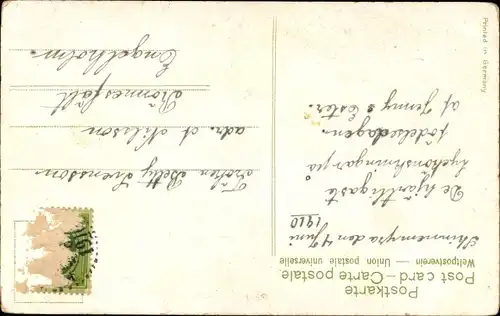 Postkarte
Post card – Carte postale
Weltpostverein — Union postale universelle
den 4 Juni
1910
De hjärtligaste
lyckönskningar på
födelsedagen.
af Jenny & Ester.
Fröken Betty Svensson
adr. A Nilsson
Rönnesfält
Engelholm.
Printed in Germany